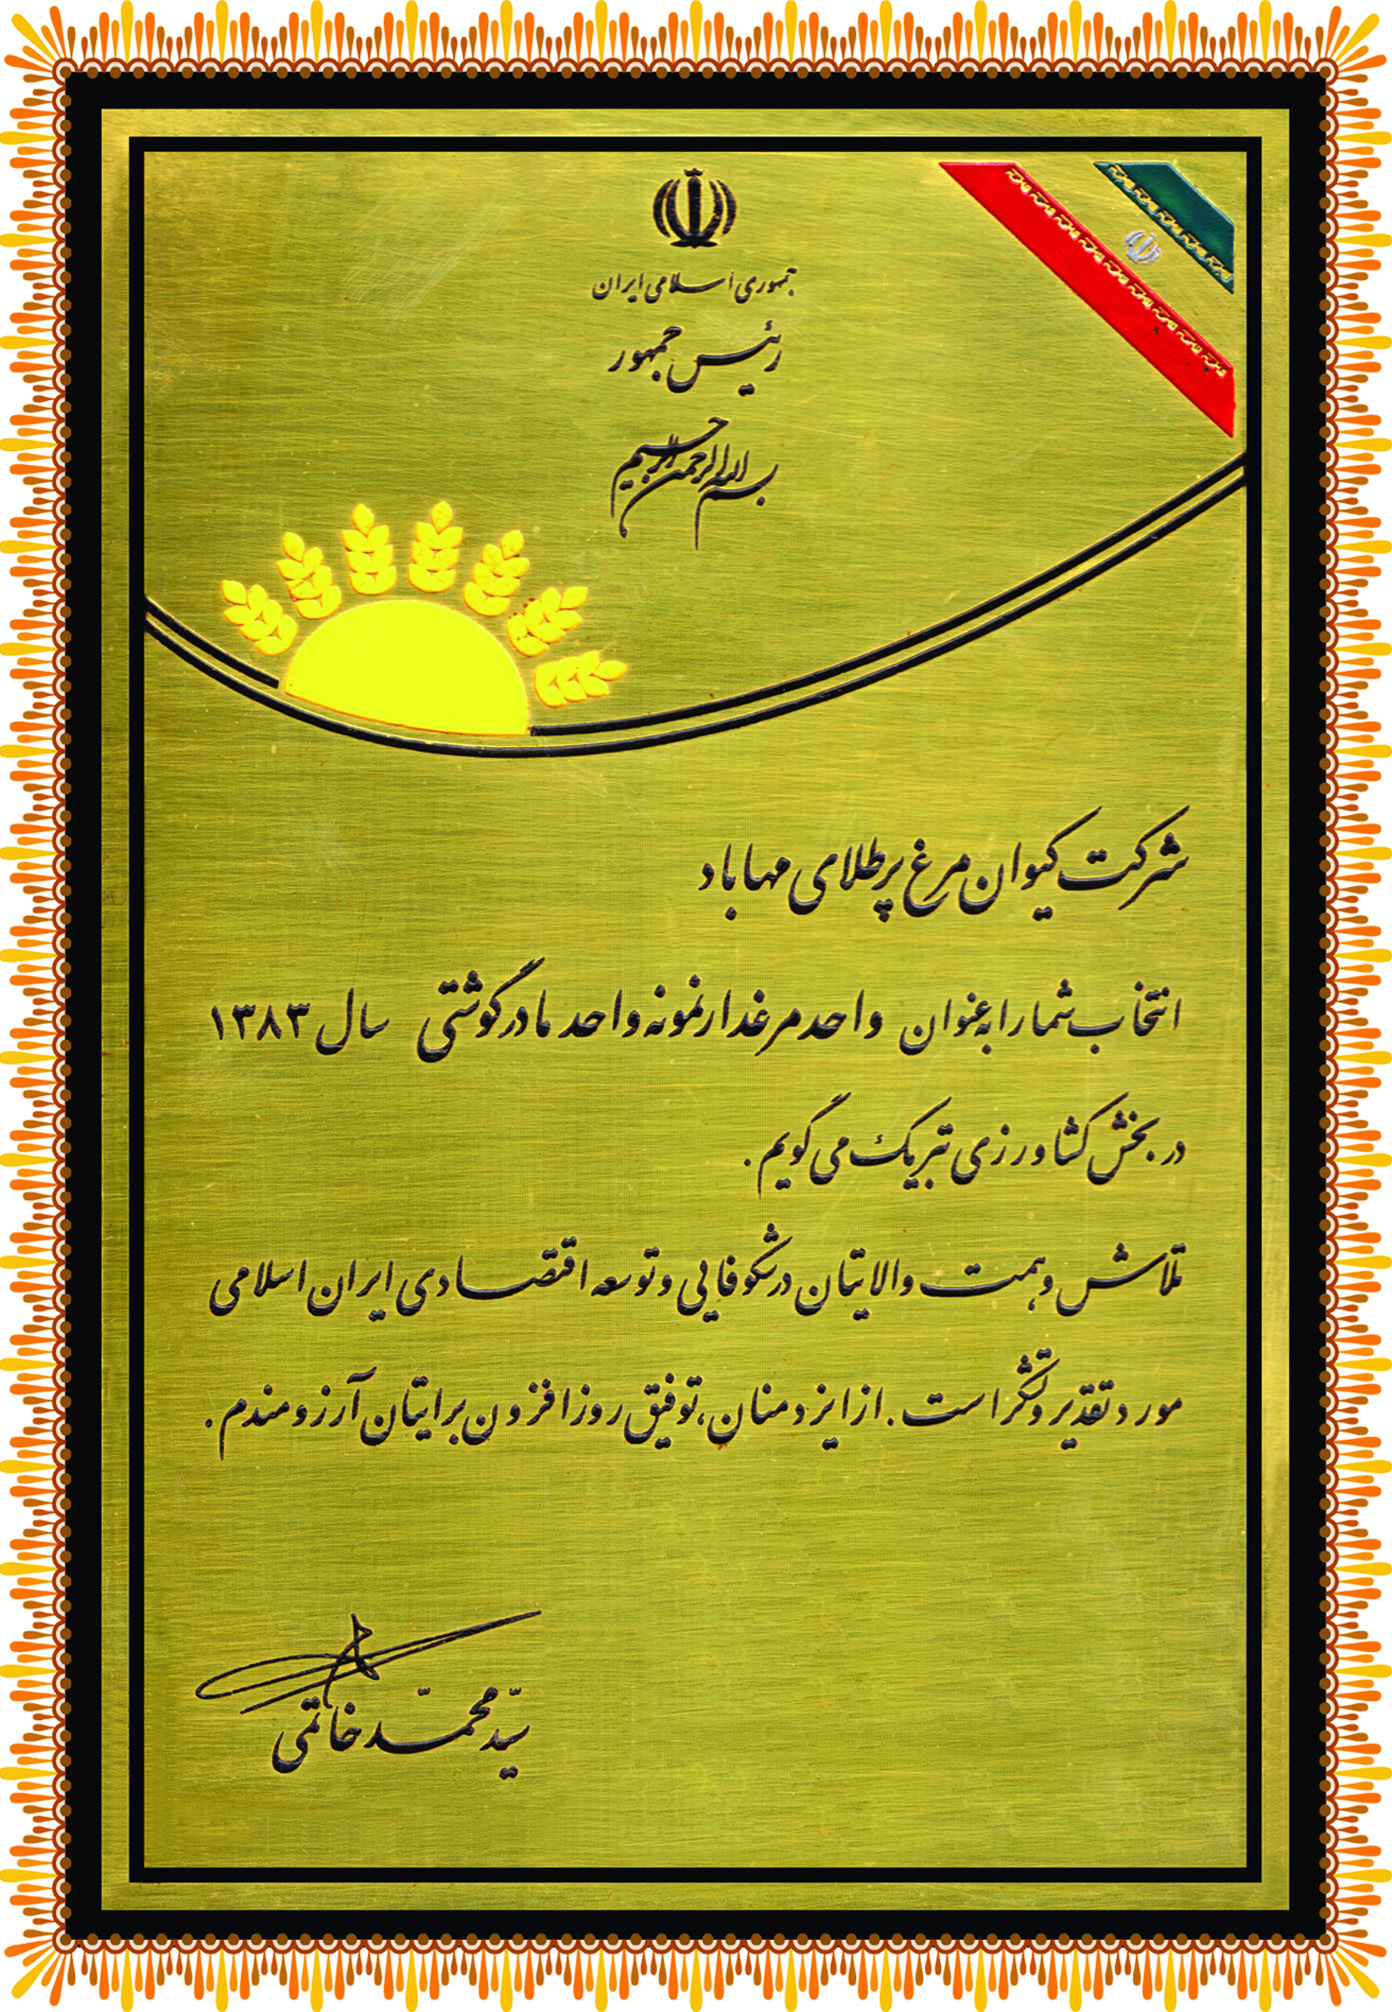 جمهوری اسلامی ایران
رئیس جمهور
بسم الله الرحمن الرحیم
شرکت کیوان مرغ پرطلای مهاباد
انتخاب شما را به عنوان واحد مرغدار نمونه واحد مادر گوشتی سال ۱۳۸۳
در بخش کشاورزی تبریک می گویم.
تلاش و همت والایتان در شکوفایی و توسعه اقتصادی ایران اسلامی
مورد تقدیر و تشکر است. از ایزد منان، توفیق روزافزون برایتان آرزومندم.
سیّد محمّد خاتمی